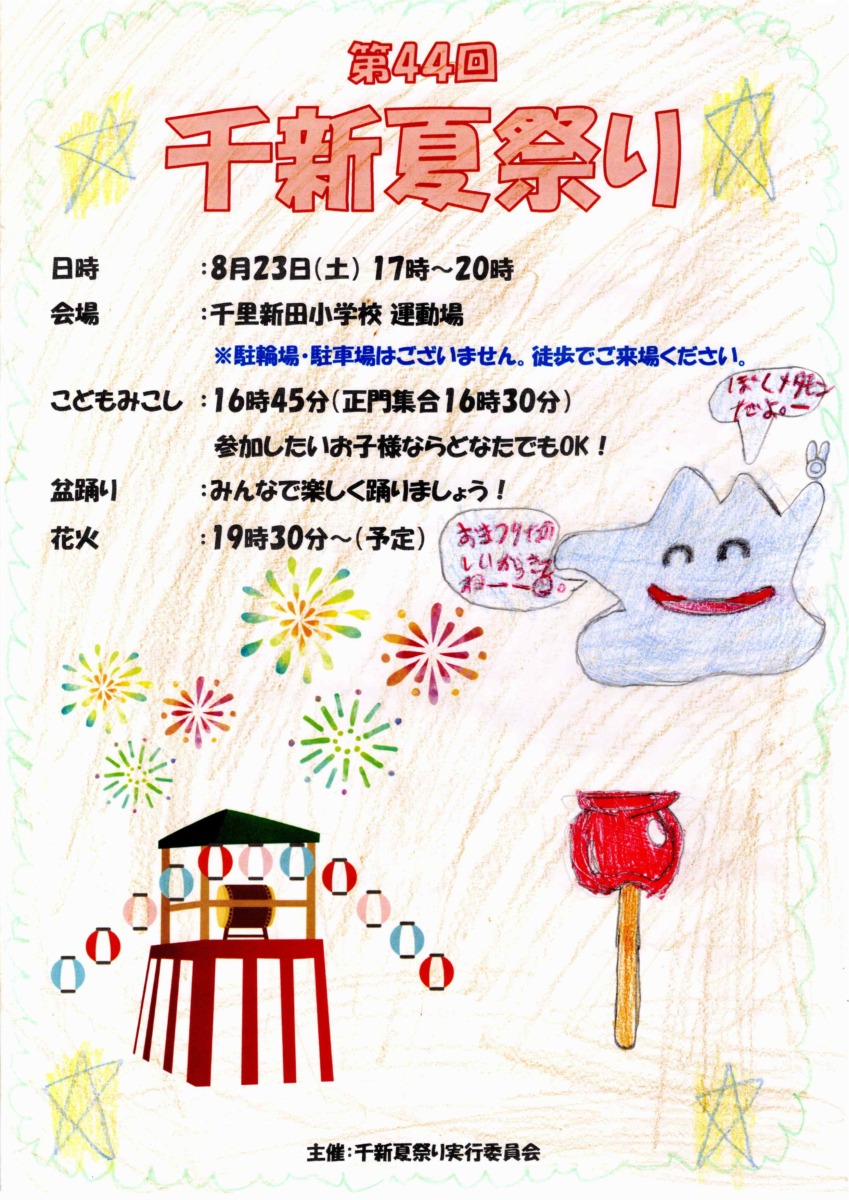 第44回
千新夏祭り
日時 :8月23日(土) 17時～20時
会場 :千里新田小学校 運動場
※駐輪場・駐車場はございません。徒歩でご来場ください。
こどもみこし :16時45分(正門集合16時30分)
参加したいお子様ならどなたでもOK!
盆踊り :みんなで楽しく踊りましょう!
花火 :19時30分～(予定)
ぼくメタモン
だよ。ー
おまつりたの
しいからきて
ねーー
主催:千新夏祭り実行委員会